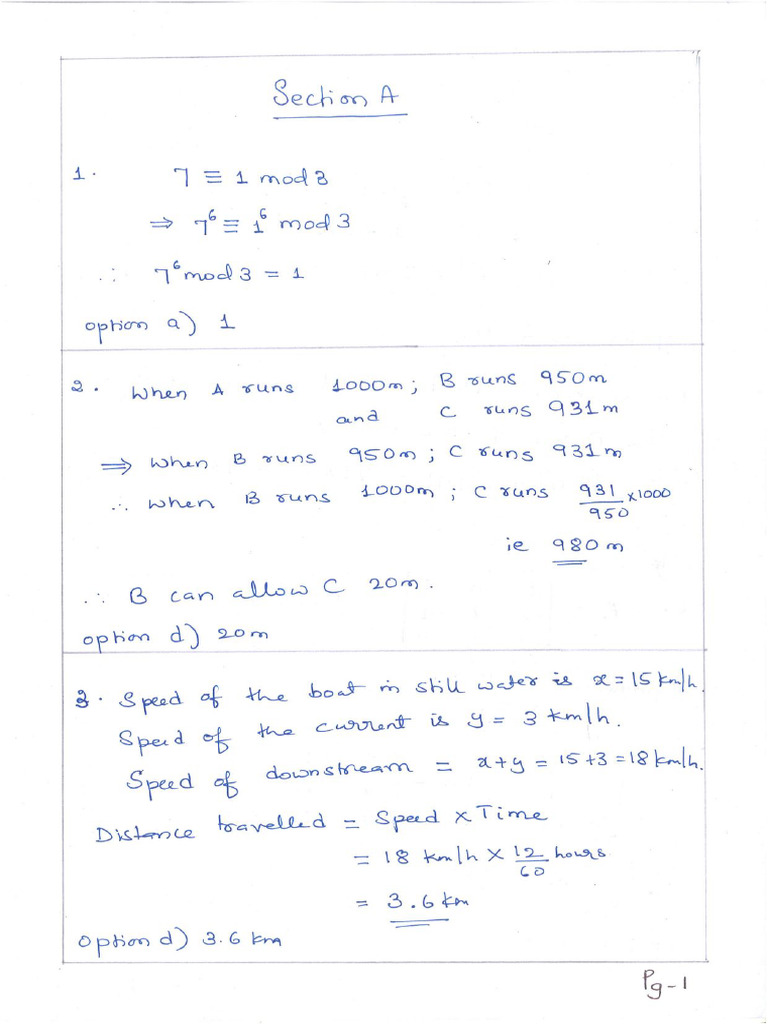 Section A
1. 7 ≡ 1 mod 3
⇒ 7⁶ ≡ 1⁶ mod 3
∴ 7⁶ mod 3 = 1
option a) 1
2. When A runs 1000m; B runs 950m
and C runs 931m
⇒ When B runs 950m; C runs 931m
∴ When B runs 1000m; C runs 931/950 × 1000
ie 980m
∴ B can allow C 20m.
option d) 20m
3. Speed of the boat in still water is x = 15 km/h.
Speed of the current is y = 3 km/h.
Speed of downstream = x+y = 15+3 = 18 km/h.
Distance travelled = Speed × Time
= 18 km/h × 12/60 hours
= 3.6 km
Option d) 3.6 km
Pg-1